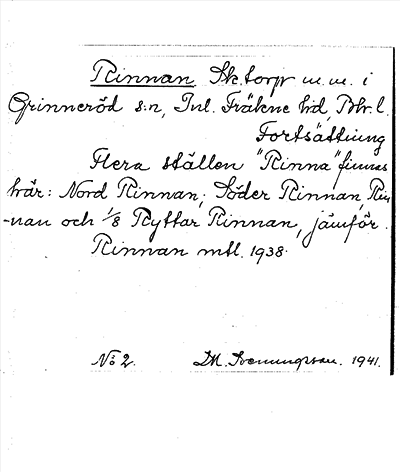 Rinnan Sk. torp m.m. i
Grinneröd s:n, Inl. Fräkne hd, Bhr. l.
Fortsättning
Flera ställen "Rinna" finnas
här: Nord Rinnan, Söder Rinnan, Rin-
-nan och 1/8 Ryttar Rinnan, jämför
Rinnan mtl. 1938.
No 2. 1941.